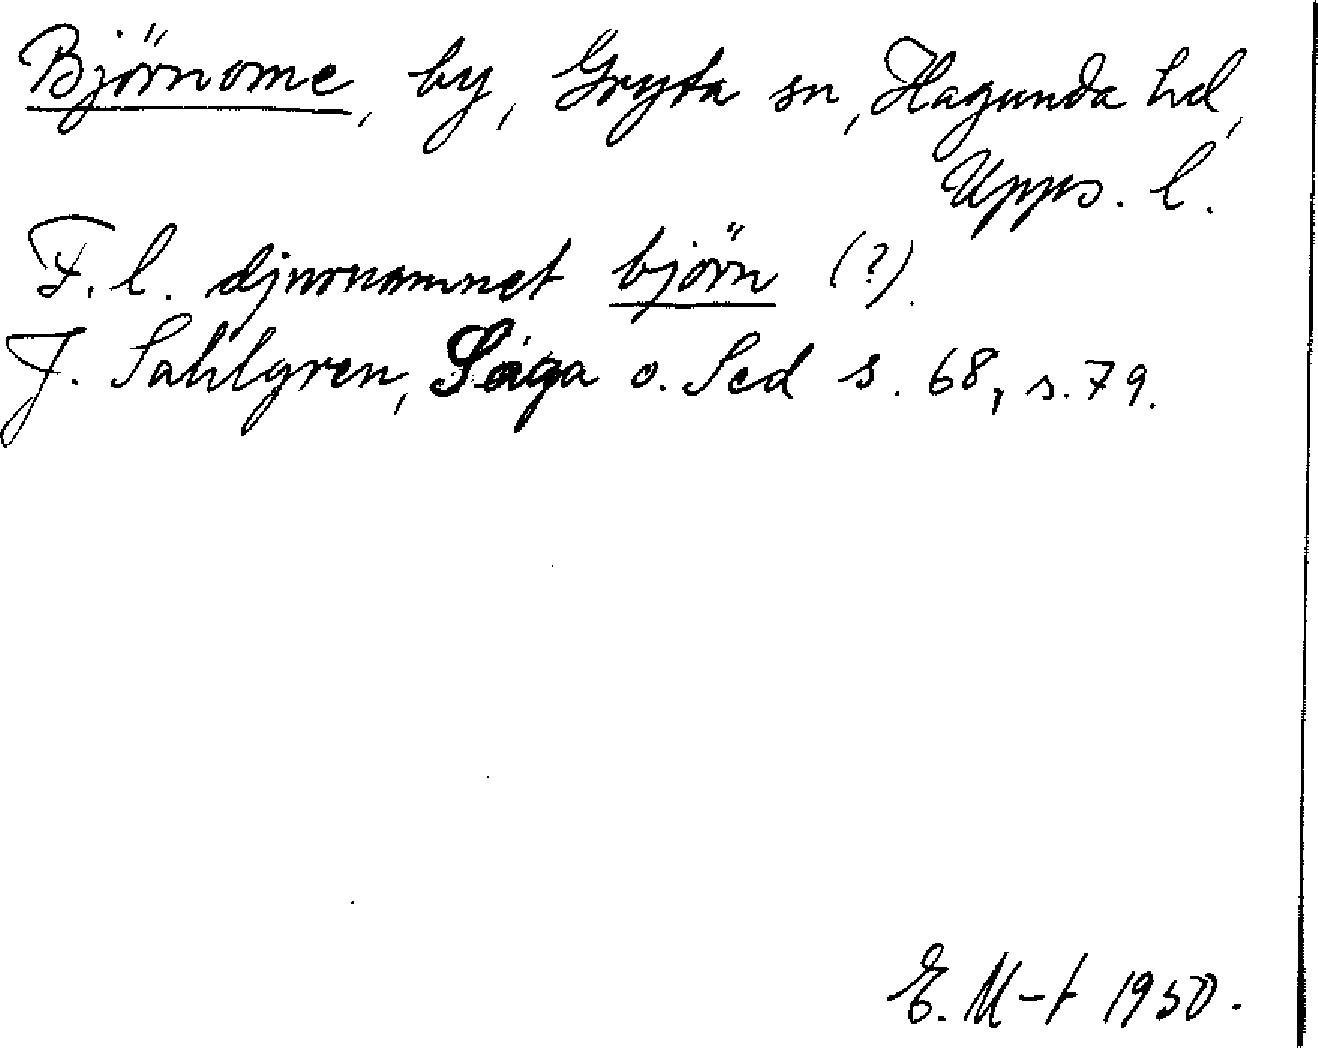 Björnome, by, Gryta sn, Hagunda hd,
Upps. l.
F. l. djurnamnet björn (?).
J. Sahlgren, Saga o. Sed s. 68, s. 79.
E. M-t 1950.